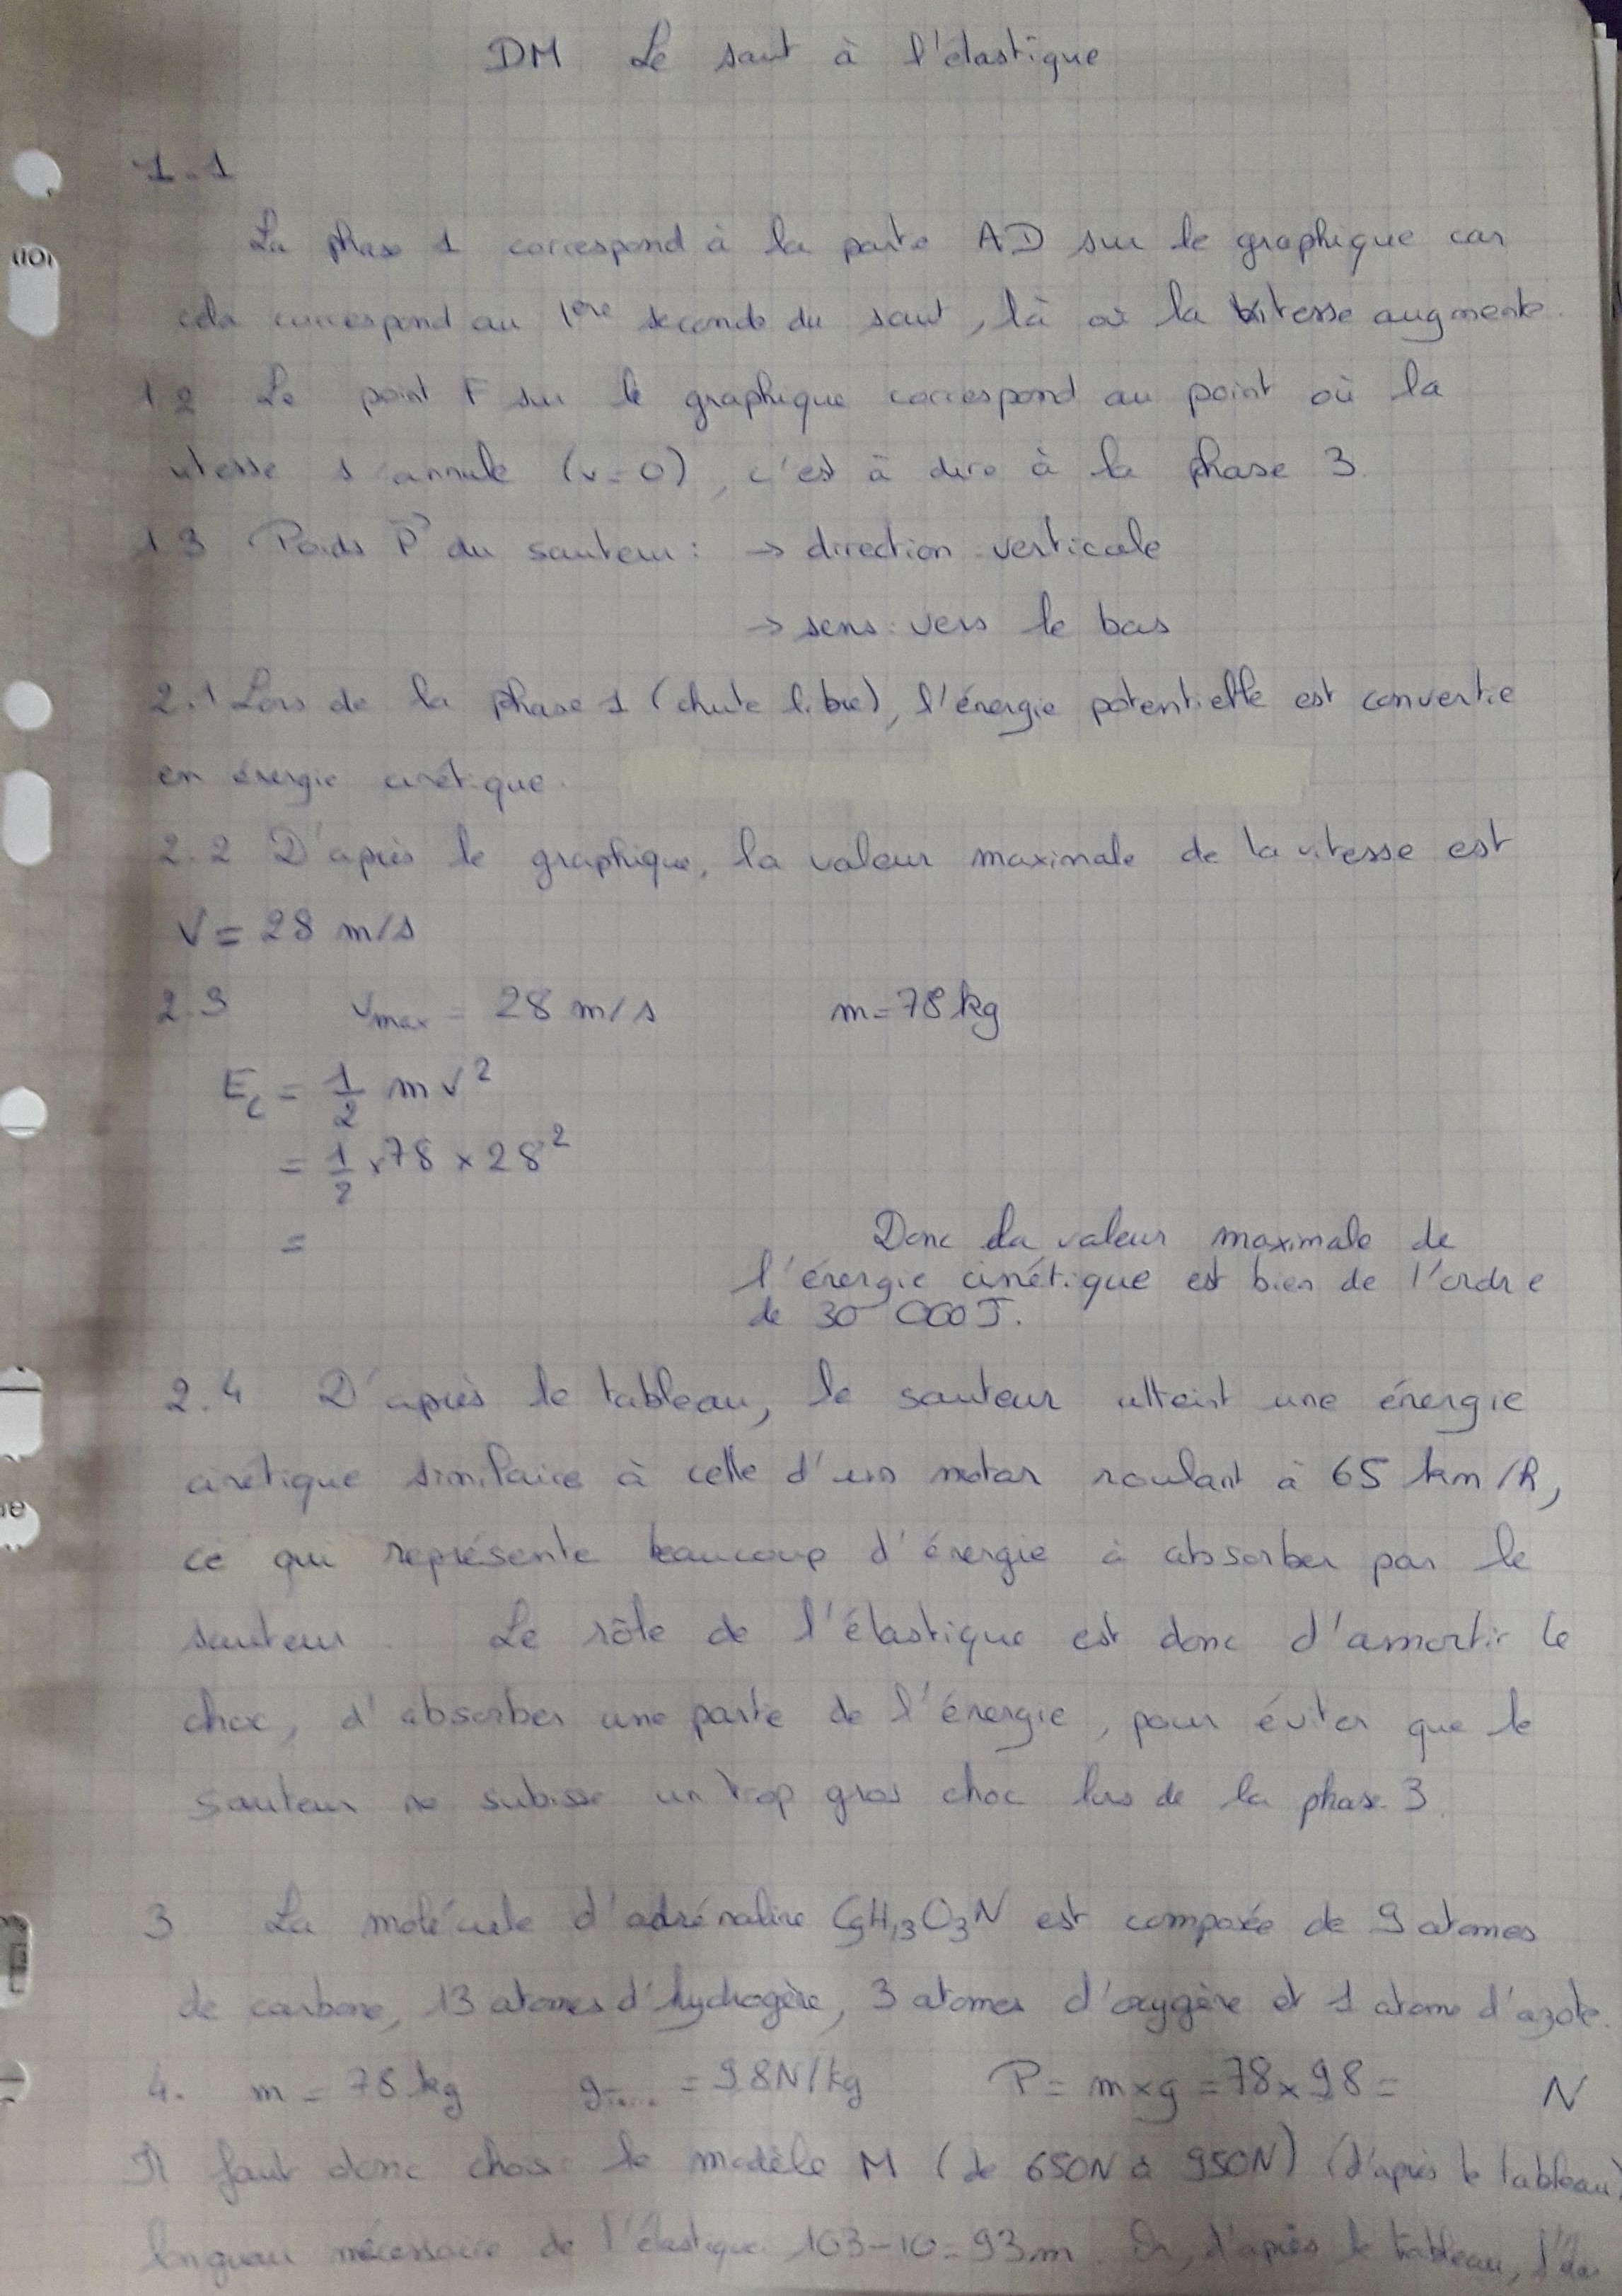 DM Le saut à l'élastique
1.1
La phase 1 correspond à la partie AD sur le graphique car
cela correspond au 1ère seconde du saut, là où la vitesse augmente.
1.2 Le point F sur le graphique correspond au point où la
vitesse s'annule (v=0), c'est à dire à la phase 3.
1.3 Poids P du sauteur : → direction : verticale
→ sens : vers le bas
2.1 Lors de la phase 1 (chute libre), l'énergie potentielle est convertie
en énergie cinétique.
2.2 D'après le graphique, la valeur maximale de la vitesse est
V = 28 m/s
2.3 vmax = 28 m/s m = 78 kg
Ec = 1/2 m v²
= 1/2 x 78 x 28²
=
Donc la valeur maximale de
l'énergie cinétique est bien de l'ordre
de 30 000 J.
2.4 D'après le tableau, le sauteur atteint une énergie
cinétique similaire à celle d'un motar roulant à 65 km/h,
ce qui représente beaucoup d'énergie à absorber par le
sauteur. Le rôle de l'élastique est donc d'amortir le
choc, d'absorber une partie de l'énergie, pour éviter que le
sauteur ne subisse un trop gros choc lors de la phase 3.
3 La molécule d'adrénaline C9H13O3N est composée de 9 atomes
de carbone, 13 atomes d'hydrogène, 3 atomes d'oxygène et 1 atome d'azote.
4. m = 78 kg g = 9,8 N/kg P = m x g = 78 x 9,8 = N
Il faut donc choisir le modèle M (de 650N à 950N) (d'après le tableau)
longueur nécessaire de l'élastique 103-10=93m. Or, d'après le tableau,